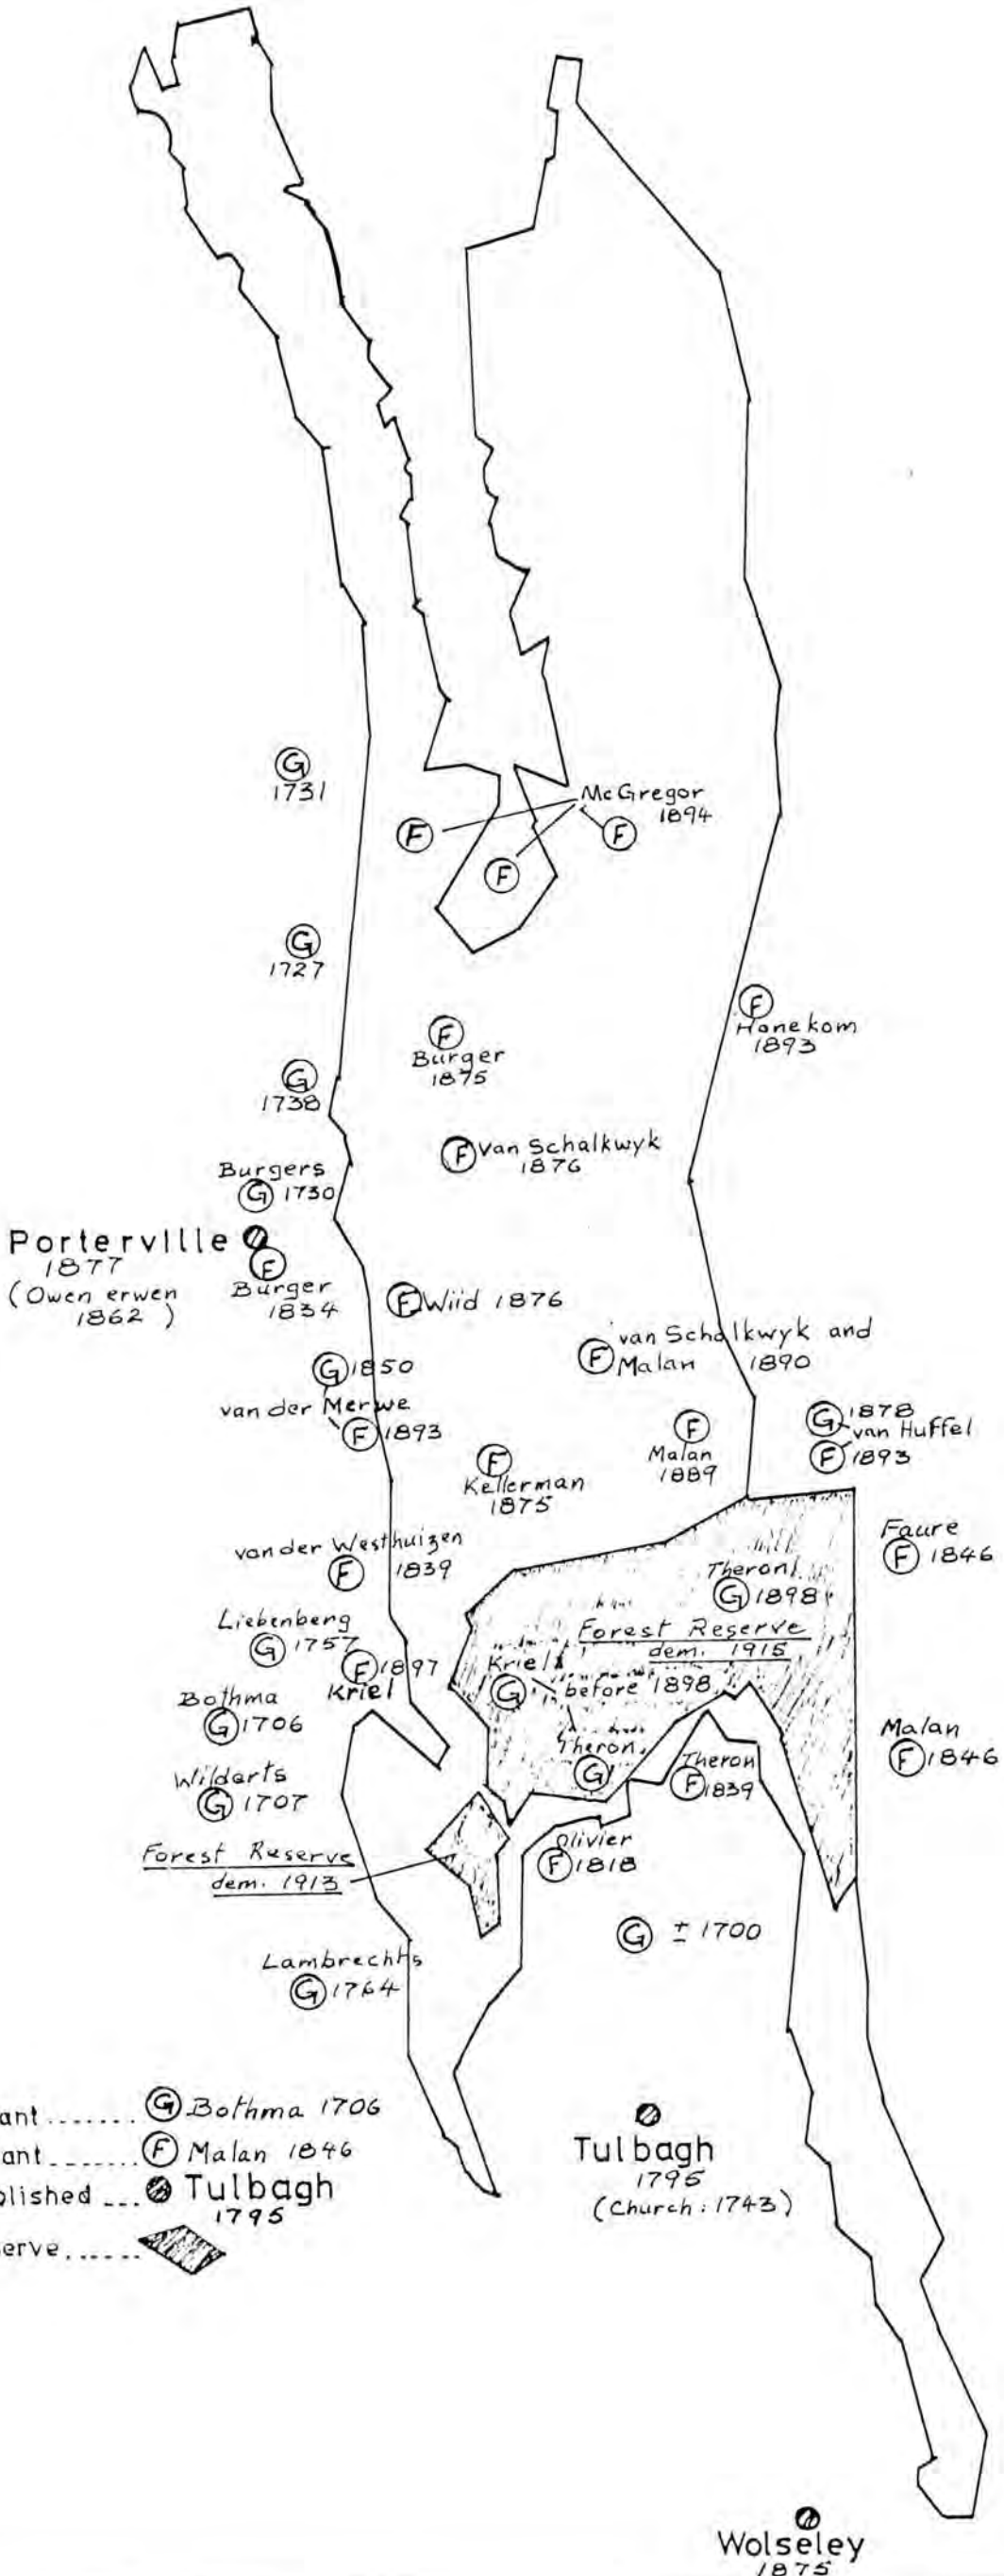 G
1731
McGregor
1894
F
F
F
G
1727
F
Hanekom
1893
F
Burger
1875
G
1738
F van Schalkwyk
1876
Burgers
G 1730
Porterville
1877
(Owen erwen
1862)
F
Burger
1834
F Wiid 1876
van Schalkwyk and
F Malan 1890
G 1850
van der Merwe
F 1893
G 1878
van Huffel
F 1893
F
Malan
1889
F
Kellerman
1875
Faure
F 1846
van der Westhuizen
F 1839
Theron
G 1898
Forest Reserve
dem. 1915
Liebenberg
G 1757
F 1897
Kriel
Kriel
G before 1898
Theron
G
Bothma
G 1706
Malan
F 1846
Wildarts
G 1707
Theron
F 1839
Forest Reserve
dem. 1913
Olivier
F 1818
G ± 1700
Lambrechts
G 1764
ant ....... G Bothma 1706
ant ....... F Malan 1846
blished ... Tulbagh
1795
erve ......
Tulbagh
1795
(Church: 1743)
Wolseley
1875